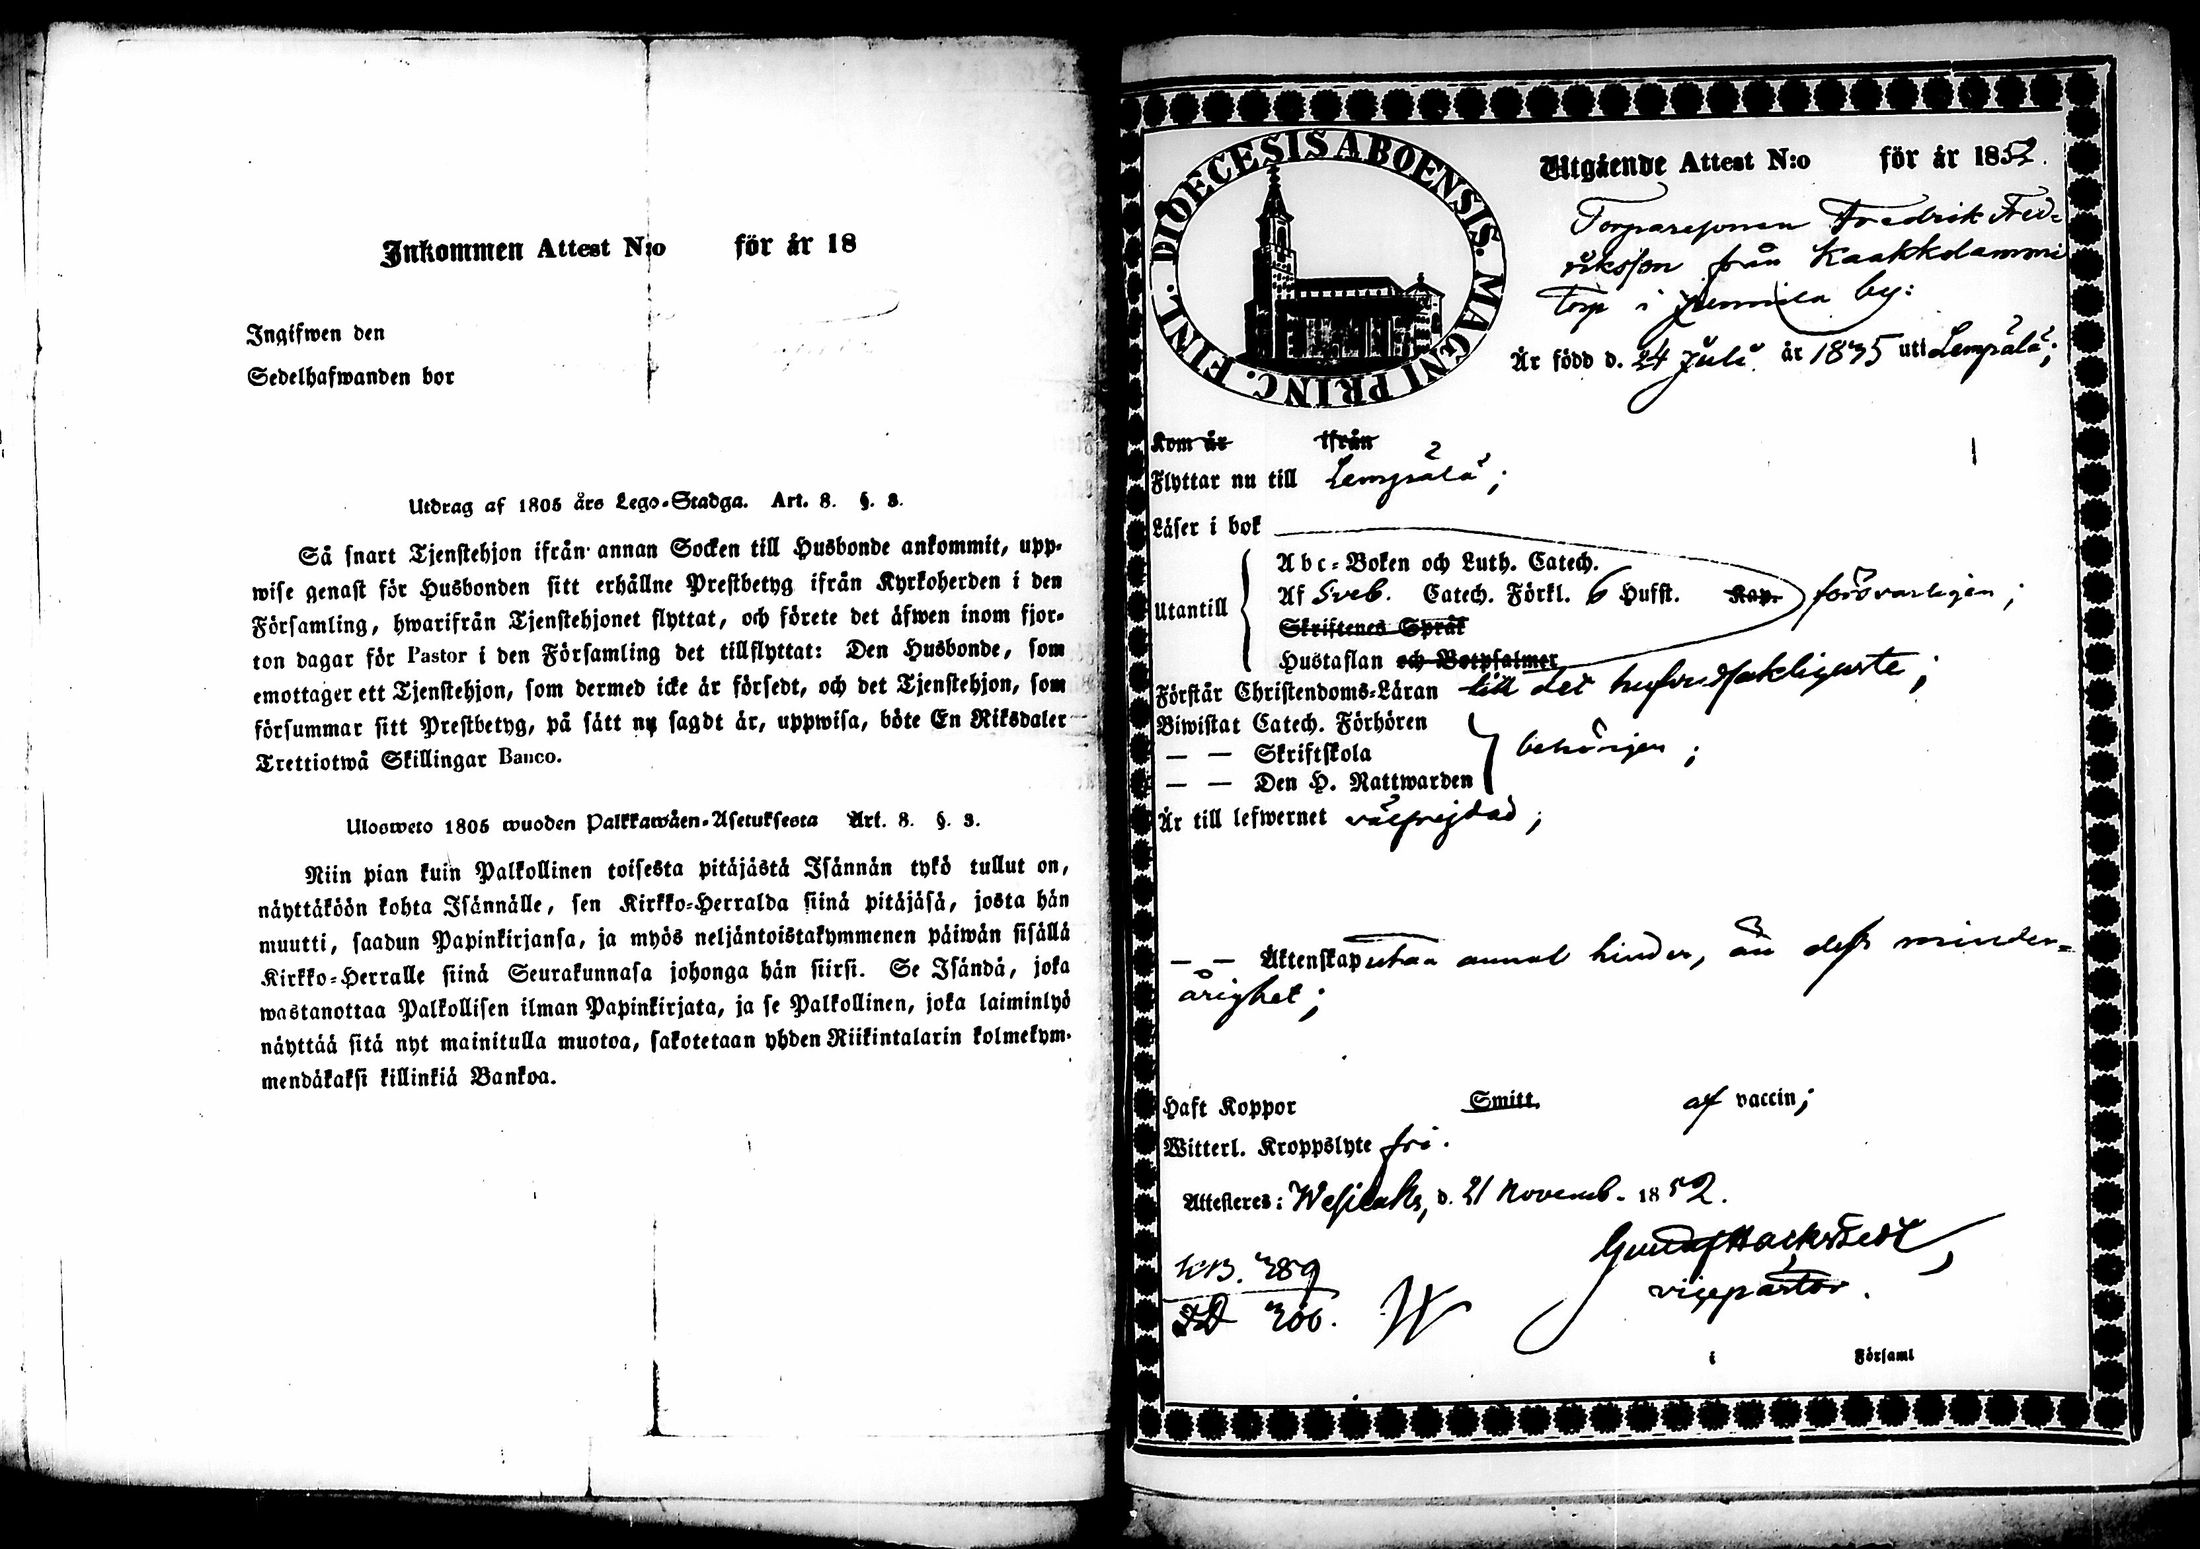 Inkommen Attest N:o för år 18
Ingifwen den
Sedelhafwanden bor
Utdrag af 1805 års Lego-Stadga. Art. 8. §. 3.
Så snart Tjenstehjon ifrån annan Socken till Husbonde ankommit, upp-
wise genast för Husbonden sitt erhållne Prestbetyg ifrån Kyrkoherden i den
Församling, hwarifrån Tjenstehjonet flyttat, och förete det äfwen inom fjor-
ton dagar för Pastor i den Församling det tillflyttat: Den Husbonde, som
emottager ett Tjenstehjon, som dermed icke är försedt, och det Tjenstehjon, som
försummar sitt Prestbetyg, på sätt nu sagdt är, uppwisa, böte En Riksdaler
Trettiotwå Skillingar Banco.
Ulosweto 1805 wuoden Palkkawäen-Asetuksesta Art. 8. §. 3.
Niin pian kuin Palkollinen toisesta pitäjästä Isännän tykö tullut on,
näyttäköön kohta Isännälle, sen Kirkko-Herralda siinä pitäjäsä, josta hän
muutti, saadun Papinkirjansa, ja myös neljäntoistakymmenen päiwän sisällä
Kirkko-Herralle siinä Seurakunnasa johonga hän siirsi. Se Isändä, joka
wastanottaa Palkollisen ilman Papinkirjata, ja se Palkollinen, joka laiminlyö
näyttää sitä nyt mainitulla muotoa, sakotetaan yhden Riikintalarin kolmekym-
mendäkaksi killinkiä Bankoa.
DIOECESIS ABOENSIS. MAGNI PRINC. FINL.
Utgående Attest N:o för år 1852.
Torparesonen Fredrik Fred-
riksson från Kaakkolammi
Torp i by:
Är född d. 24 Juli år 1835 uti Lempälä;
Kom år ifrån
Flyttar nu till Lempälä;
Läser i bok
Abc-Boken och Luth. Catech.
Utantill Af Sveb. Catech. Förkl. 6 Hufst. Kap. försvarligen;
Skriftenes Språk
Hustaflan och Botpsalmer
Förstår Christendoms-Läran till det hufvudsakligaste;
Biwistat Catech. Förhören
— — Skriftskola behörigen;
— — Den H. Nattwarden
Är till lefwernet välfrejdad;
— — Äktenskap utan annat hinder, än dess minder-
årighet;
Haft Koppor Smitt. af vaccin;
Witterl. Kroppslyte fri.
Attesteres: Wesilaks, d. 21 Novemb. 1852.
Gustaf Hackstedt,
vicepastor.
KB. 389
ID 300.
i Församl